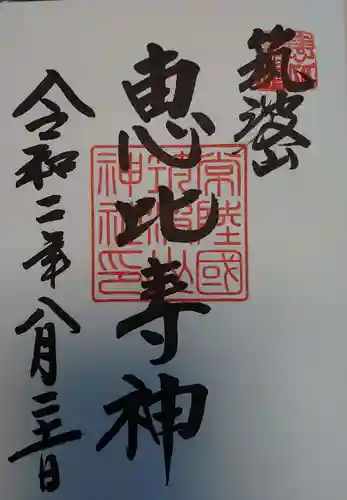 筑波山
恵比寿神
令和二年八月二十一日
常陸國
筑波山
神社印